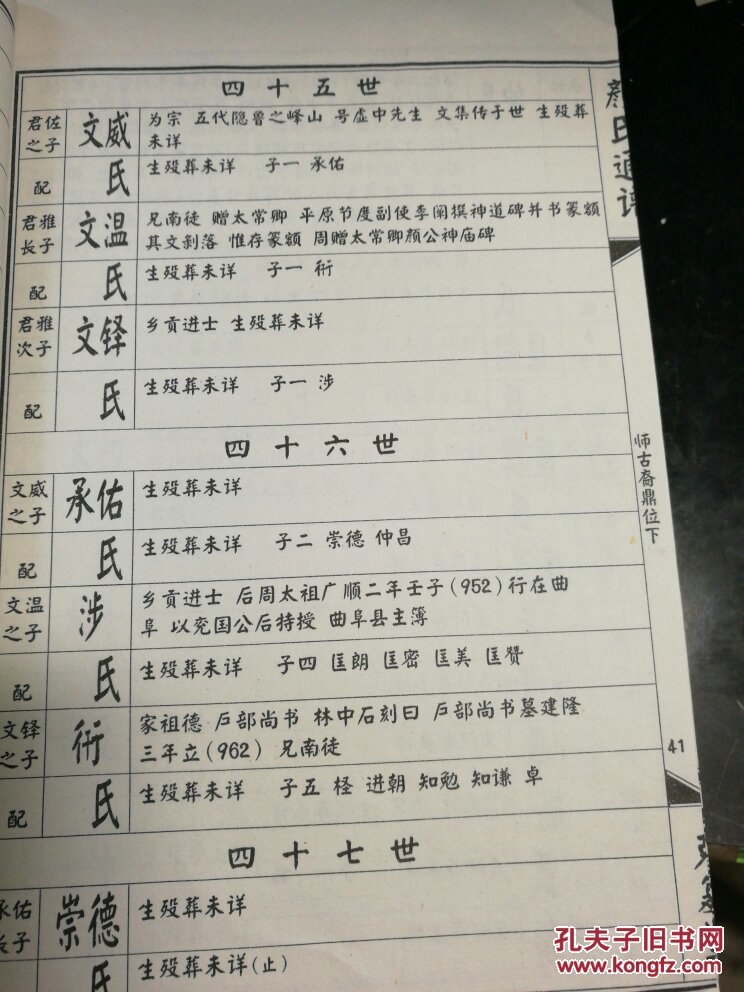 四十五世
君佐之子 文威 为宗 五代隐鲁之峰山 号虚中先生 文集传于世 生殁葬
未详
配 氏 生殁葬未详 子一 承佑
君雅长子 文温 兄南徒 赠太常卿 平原节度副使李闻撰神道碑并书篆额
其文剥落 惟存篆额 周赠太常卿颜公神庙碑
配 氏 生殁葬未详 子一 衎
君雅次子 文铎 乡贡进士 生殁葬未详
配 氏 生殁葬未详 子一 涉
四十六世
文威之子 承佑 生殁葬未详
配 氏 生殁葬未详 子二 崇德 仲昌
文温之子 涉 乡贡进士 后周太祖广顺二年壬子(952)行在曲
阜 以兖国公后特授 曲阜县主簿
配 氏 生殁葬未详 子四 匡朗 匡密 匡美 匡赞
文铎之子 衎 家祖德 户部尚书 林中石刻曰 户部尚书墓建隆
三年立(962) 兄南徒
配 氏 生殁葬未详 子五 柽 进朝 知勉 知谦 卓
四十七世
承佑长子 崇德 生殁葬未详
氏 生殁葬未详(止)
颜氏通谱
师古裔鼎位下
41
孔夫子旧书网
www.kongfz.com